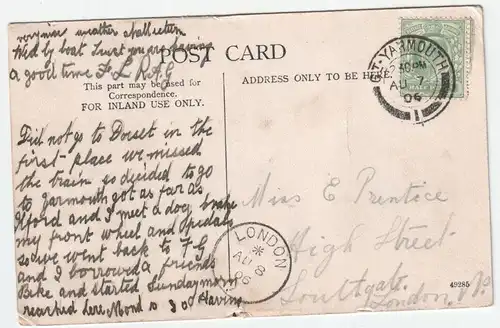 very nice weather shall return
Wed by boat Trust you are having
a good time F L R A G
POST CARD
This part may be used for
Correspondence.
FOR INLAND USE ONLY.
ADDRESS ONLY TO BE HERE.
GT. YARMOUTH
2.40PM
AU 7
06
1
HALF P
Did not go to Dorset in the
first place we missed
the train so decided to go
to Yarmouth got as far as
and I met a dog broke
my front wheel and pedals
so we went back to F G
and I borrowed a friends
Bike and started Sunday morn
reached here Mond 10 30 Having
Miss E Prentice
High Street
Southgate
London. N.
LONDON
AU 8
06
49285